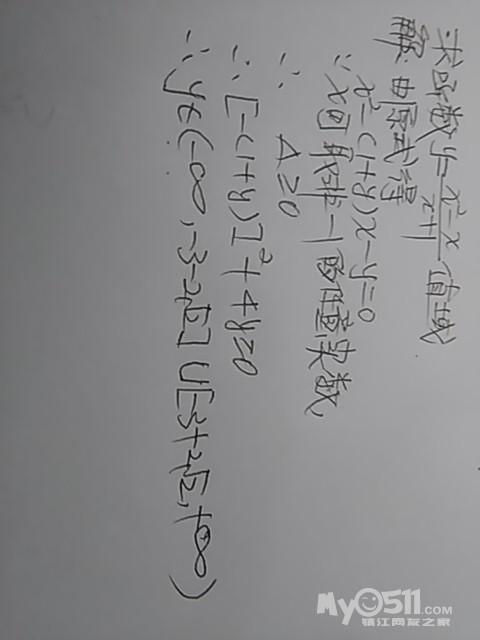 求函数y=(x²-x)/(x+1)值域
解：由原式得
x²-(1+y)x-y=0
∵x可取非-1的任意实数,
∴ Δ≥0
∴ [-(1+y)]²+4y≥0
∴ y∈(-∞,-3-2√2]∪[-3+2√2,+∞)
My0511.com
镇江网友之家